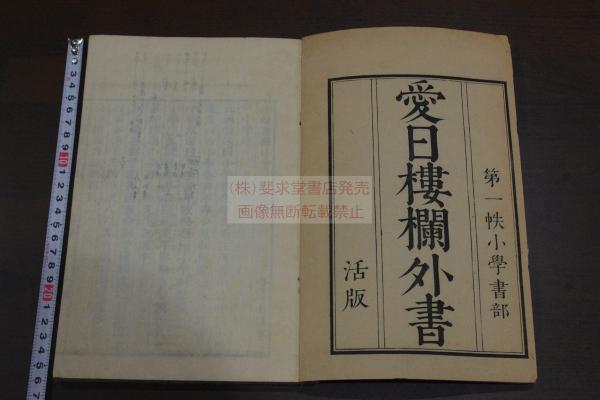 第一帙小學書部
愛日樓欄外書
活版
(株)斐求堂書店発売
画像無断転載禁止
3 4 5 6 7 8 9 10 1 2 3 4 5 6 7 8 9 20 1 2 3 4 5 6 7